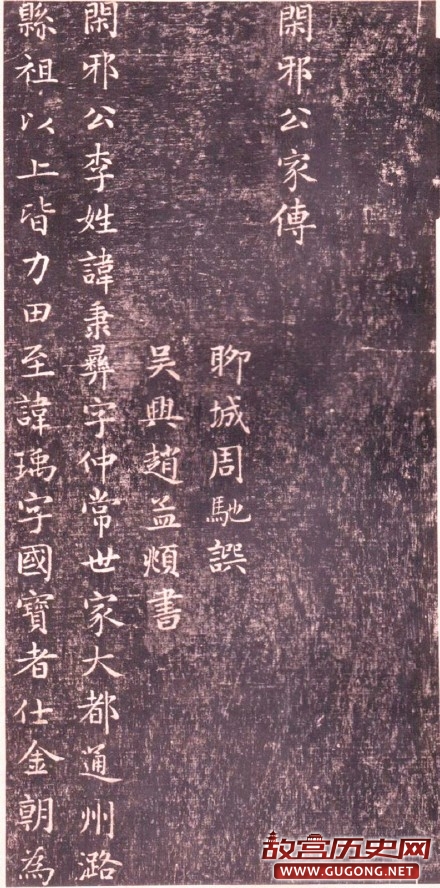 閑邪公家傳
聊城周馳譔
吴興趙孟頫書
閑邪公李姓諱秉彝字仲常世家大都通州潞
縣祖以上皆力田至諱瑀字國寶者仕金朝為
故宫历史网
WWW.GUGONG.NET